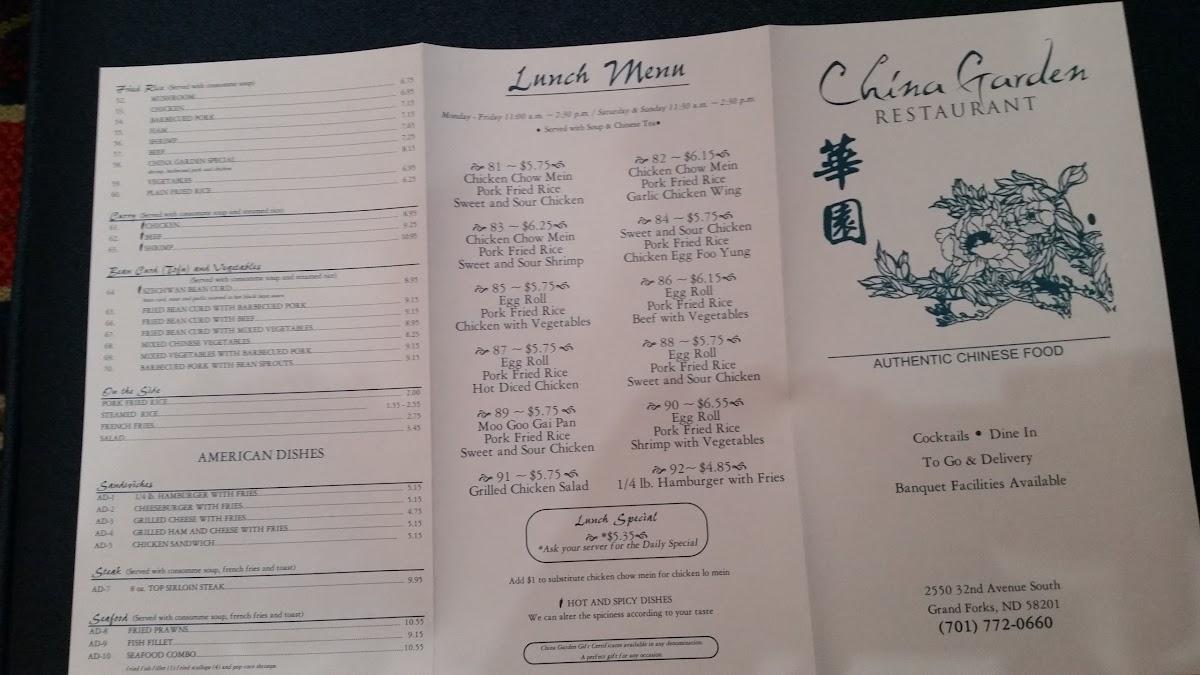 Fried Rice (Served with consomme soup)
52. MUSHROOM 6.75
53. CHICKEN 6.95
54. BARBECUED PORK 7.15
55. HAM 7.15
56. SHRIMP 7.65
57. BEEF 7.25
58. CHINA GARDEN SPECIAL 8.15
shrimp, barbecued pork and chicken
59. VEGETABLES 6.95
60. PLAIN FRIED RICE 6.25
Curry (Served with consomme soup and steamed rice)
61. CHICKEN 8.95
62. BEEF 9.25
63. SHRIMP 10.95
Bean Curd (Tofu) and Vegetables
(Served with consomme soup and steamed rice)
64. SZECHWAN BEAN CURD 8.95
65. FRIED BEAN CURD WITH BARBECUED PORK 9.15
66. FRIED BEAN CURD WITH BEEF 9.15
67. FRIED BEAN CURD WITH MIXED VEGETABLES 8.95
68. MIXED CHINESE VEGETABLES 8.25
69. MIXED VEGETABLES WITH BARBECUED PORK 9.15
70. BARBECUED PORK WITH BEAN SPROUTS 9.15
On the Side
PORK FRIED RICE 2.00
STEAMED RICE 1.55 - 2.55
FRENCH FRIES 2.75
SALAD 3.45
AMERICAN DISHES
Sandwiches
AD-1 1/4 lb. HAMBURGER WITH FRIES 5.15
AD-2 CHEESEBURGER WITH FRIES 5.15
AD-3 GRILLED CHEESE WITH FRIES 4.75
AD-4 GRILLED HAM AND CHEESE WITH FRIES 5.15
AD-5 CHICKEN SANDWICH 5.15
Steak (Served with consomme soup, french fries and toast)
AD-7 8 oz. TOP SIRLOIN STEAK 9.95
Seafood (Served with consomme soup, french fries and toast)
AD-8 FRIED PRAWNS 10.55
AD-9 FISH FILLET 9.15
AD-10 SEAFOOD COMBO 10.55
Fried Fish Fillet (1) fried scallops (4) and pop corn shrimps
Lunch Menu
Monday - Friday 11:00 a.m. ~ 2:30 p.m. / Saturday & Sunday 11:30 a.m. ~ 2:30 p.m.
• Served with Soup & Chinese Tea•
81 ~ $5.75
Chicken Chow Mein
Pork Fried Rice
Sweet and Sour Chicken
82 ~ $6.15
Chicken Chow Mein
Pork Fried Rice
Garlic Chicken Wing
83 ~ $6.25
Chicken Chow Mein
Pork Fried Rice
Sweet and Sour Shrimp
84 ~ $5.75
Sweet and Sour Chicken
Pork Fried Rice
Chicken Egg Foo Yung
85 ~ $5.75
Egg Roll
Pork Fried Rice
Chicken with Vegetables
86 ~ $6.15
Egg Roll
Pork Fried Rice
Beef with Vegetables
87 ~ $5.75
Egg Roll
Pork Fried Rice
Hot Diced Chicken
88 ~ $5.75
Egg Roll
Pork Fried Rice
Sweet and Sour Chicken
89 ~ $5.75
Moo Goo Gai Pan
Pork Fried Rice
Sweet and Sour Chicken
90 ~ $6.55
Egg Roll
Pork Fried Rice
Shrimp with Vegetables
91 ~ $5.75
Grilled Chicken Salad
92~ $4.85
1/4 lb. Hamburger with Fries
Lunch Special
*$5.35
*Ask your server for the Daily Special
Add $1 to substitute chicken chow mein for chicken lo mein
HOT AND SPICY DISHES
We can alter the spiciness according to your taste
China Garden Gift Certificates available in any denomination.
A perfect gift for any occasion.
China Garden
RESTAURANT
華
園
AUTHENTIC CHINESE FOOD
Cocktails • Dine In
To Go & Delivery
Banquet Facilities Available
2550 32nd Avenue South
Grand Forks, ND 58201
(701) 772-0660